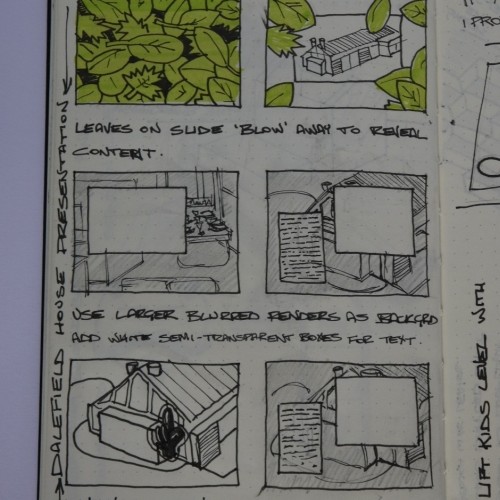 LEAVES ON SLIDE 'BLOW' AWAY TO REVEAL
CONTENT.
USE LARGER BLURRED RENDERS AS BACKGRD
ADD WHITE SEMI-TRANSPARENT BOXES FOR TEXT.
DALEFIELD HOUSE PRESENTATION
I PRO
LIFT KIDS LEVEL WITH